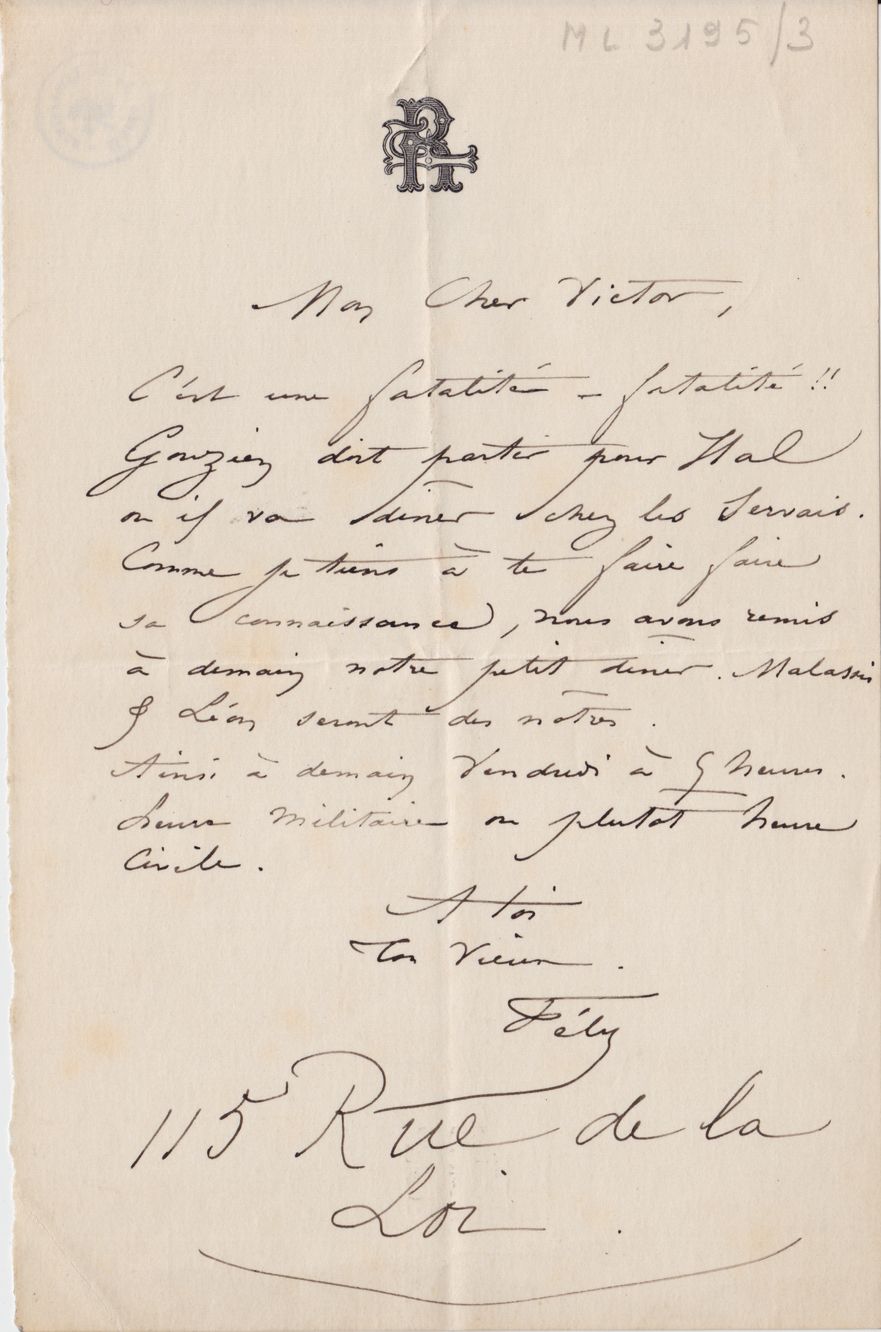 ML 3195/3
R
Mon Cher Victor,
C'est une fatalité – fatalité !!
Gouzien doit partir pour Hal
ou il va dîner chez les Servais.
Comme je tiens à te faire faire
sa connaissance, nous avons remis
à demain notre petit dîner. Malassis
& Léon seront des nôtres.
Ainsi à demain Vendredi à 5 heures.
heure militaire ou plutôt heure
civile.
A toi
Ton vieux.
Fély
115 Rue de la
Loi.